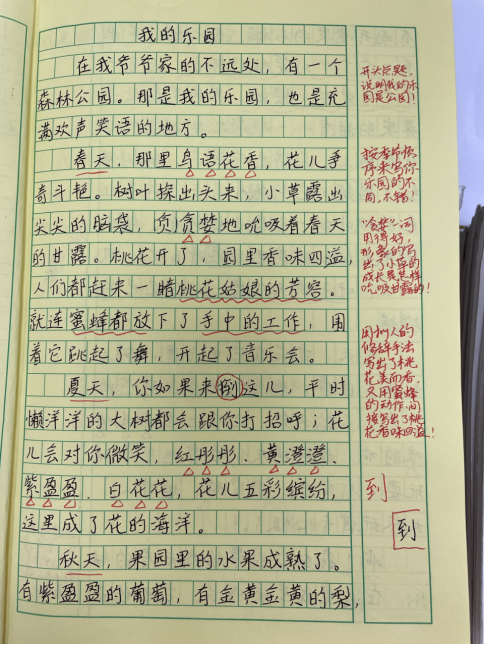 我的乐园
在我爷爷家的不远处，有一个
森林公园。那是我的乐园，也是充
满欢声笑语的地方。
春天，那里鸟语花香，花儿争
奇斗艳。树叶探出头来，小草露出
尖尖的脑袋，贪贪婪地吮吸着春天
的甘露。桃花开了，园里香味四溢，
人们都赶来一睹桃花姑娘的芳容。
就连蜜蜂都放下了手中的工作，围
着它跳起了舞，开起了音乐会。
夏天，你如果来倒这儿，平时
懒洋洋的大树都会跟你打招呼；花
儿会对你微笑，红彤彤、黄澄澄、
紫盈盈、白花花，花儿五彩缤纷，
这里成了花的海洋。
秋天，果园里的水果成熟了。
有紫盈盈的葡萄，有金黄金黄的梨，
开头点题，
说明我的乐
园是公园！
按季节顺
序来写你
乐园的不
同，不错！
"贪婪"一词
用得好，
形象的写
出了小草的
成长是怎样
吮吸甘露的！
用拟人的
修辞手法
写出了桃
花美而香，
又用蜜蜂
的动作，间
接写出了桃
花香味四溢！
到
到